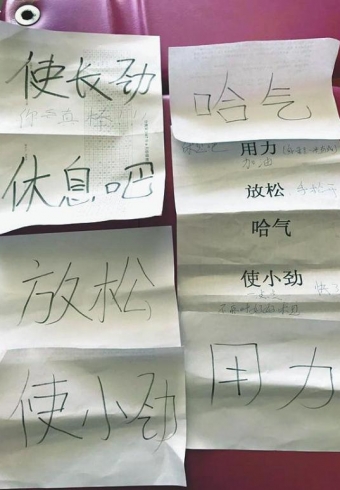 使长劲
你真棒
休息吧
放松
使小劲
哈气
用力
加油
放松
哈气
使小劲
用力